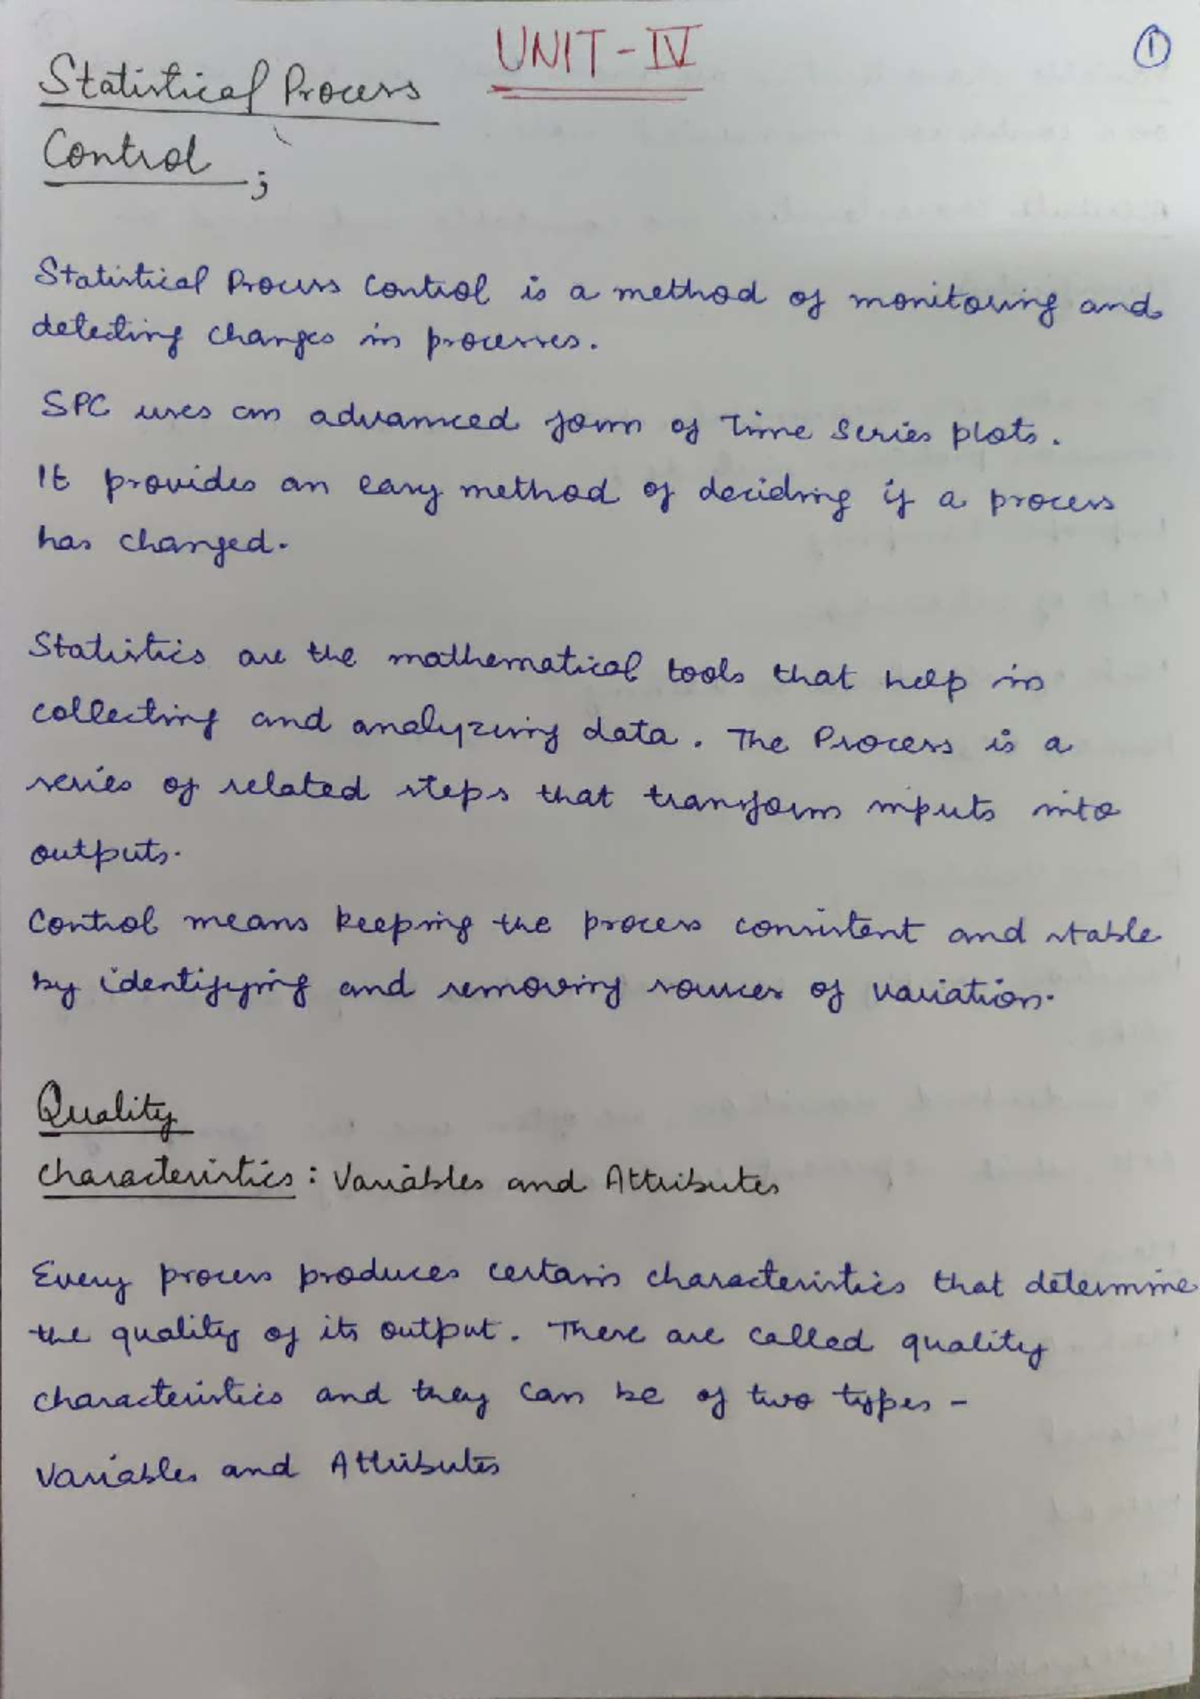 UNIT-IV
1
Statistical Process
Control ;
Statistical Process Control is a method of monitoring and
detecting changes in processes.
SPC uses an advanced form of Time Series plots.
It provides an easy method of deciding if a process
has changed.
Statistics are the mathematical tools that help in
collecting and analyzing data. The Process is a
series of related steps that transform inputs into
outputs.
Control means keeping the process consistent and stable
by identifying and removing sources of variation.
Quality
Characteristics : Variables and Attributes
Every process produces certain characteristics that determine
the quality of its output. These are called quality
characteristics and they can be of two types -
Variables and Attributes